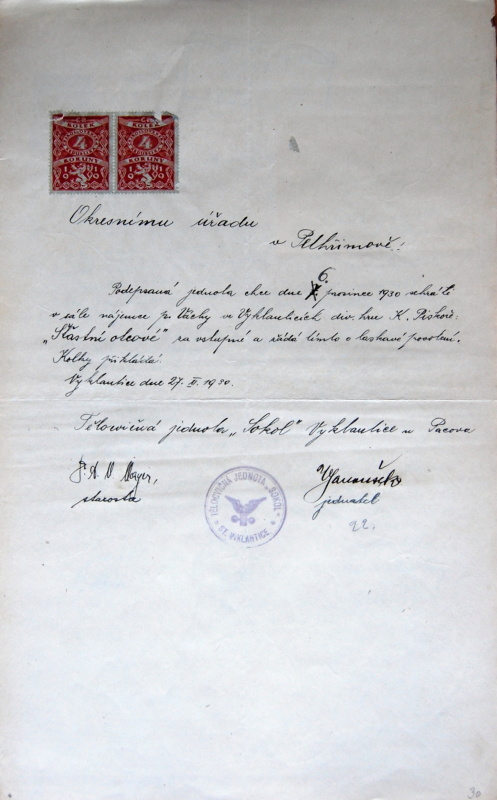 KOLEK
4
KORUNY
1919
KOLEK
4
KORUNY
1919
Okresnímu úřadu
v Pelhřimově!
6.
Podepsaná jednota chce dne prosince 1930 sehráti
v sále nájemce p. Váchy ve Vyklanticích div. hru K. Piskoře:
"Šťastní otcové" za vstupné a žádá tímto o laskavé povolení.
Kolky přikládá.
Vyklantice dne 27. XI. 1930.
Tělocvičná jednota "Sokol" Vyklantice u Pacova
Mayer,
starosta
jednatel
22.
TĚLOCVIČNÁ JEDNOTA „SOKOL"
ST. VYKLANTICE
30